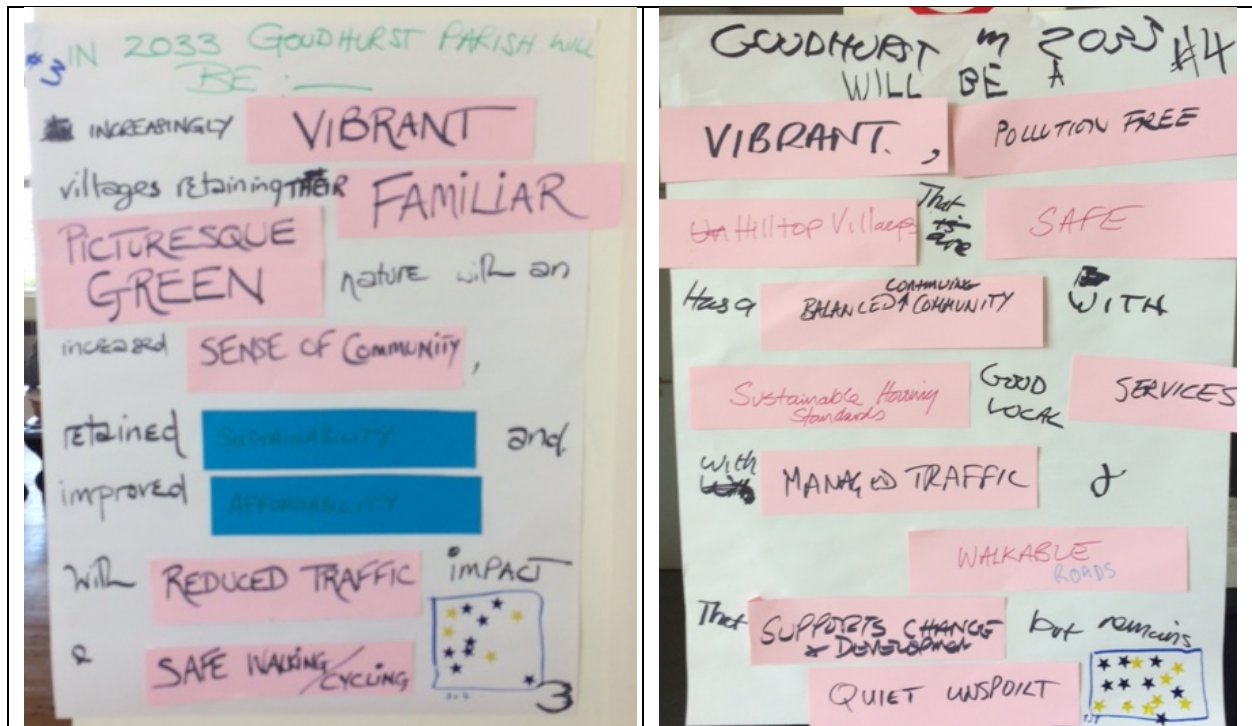 #3 IN 2033 GOUDHURST PARISH WILL
BE :
INCREASINGLY VIBRANT
villages retaining THEIR FAMILIAR
PICTURESQUE
GREEN nature with an
increased SENSE OF COMMUNITY,
retained SUSTAINABILITY and
improved AFFORDABILITY
with REDUCED TRAFFIC impact
& SAFE WALKING/CYCLING
3
GOUDHURST in 2033 #4
WILL BE A
VIBRANT, POLLUTION FREE
Hilltop Villages That are SAFE
Has a BALANCED CONTINUING COMMUNITY WITH
Sustainable Housing Standards GOOD LOCAL SERVICES
with MANAGED TRAFFIC &
WALKABLE
ROADS
That SUPPORTS CHANGE
& DEVELOPMENT but remains
QUIET UNSPOILT